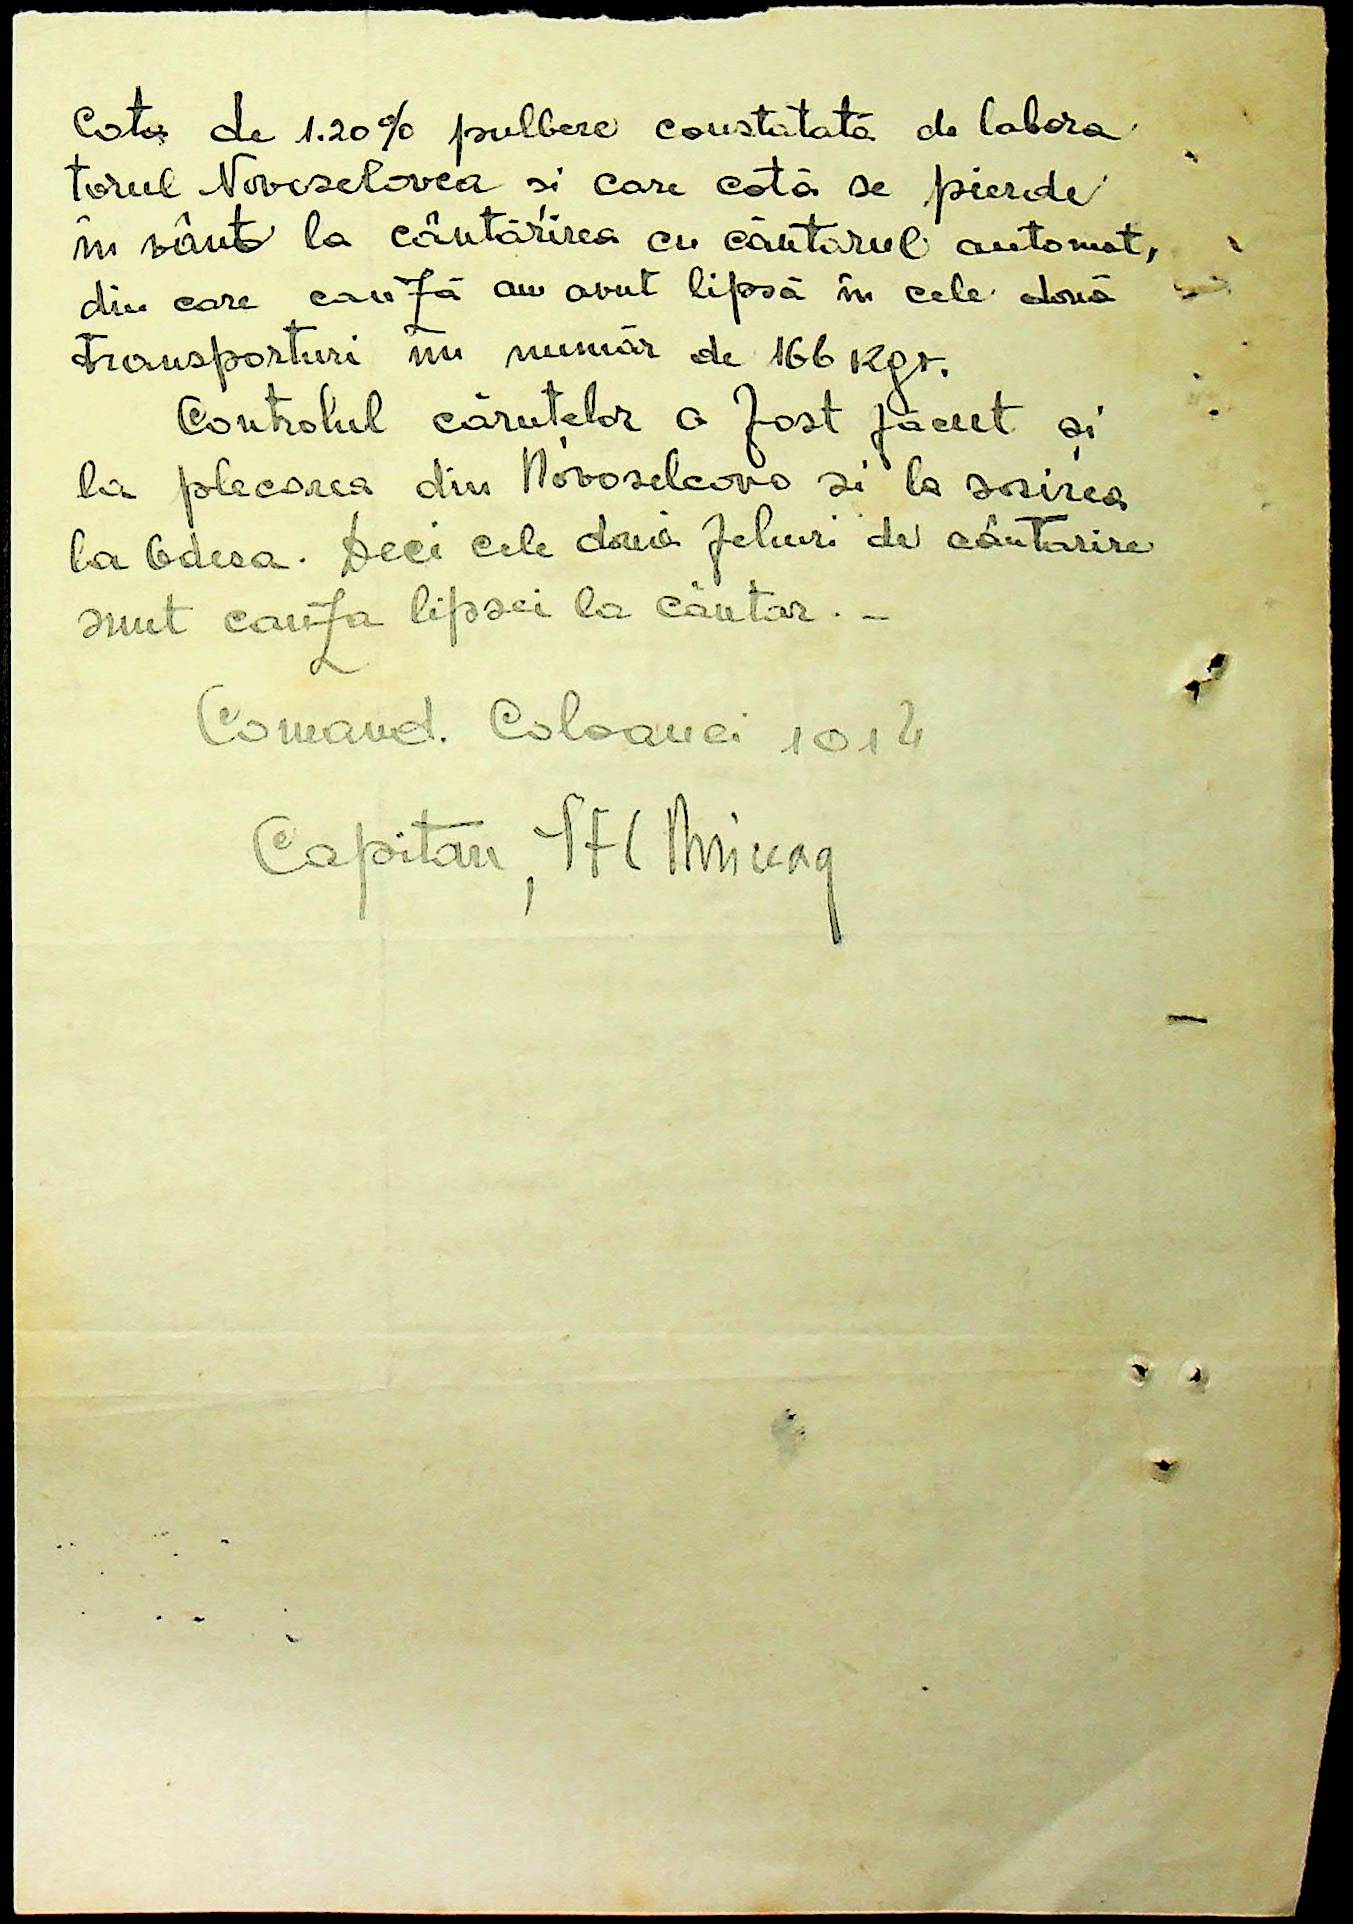 Cota de 1.20% pulbere constatată de labora
torul Novoselovca si care cotă se pierde
în vânt la cântărirea cu cântarul automat,
din care cauză am avut lipsă în cele două
transporturi un număr de 166 Kgr.
Controlul căruțelor a fost făcut și
la plecarea din Novoselcovo si la sosirea
la Odesa. Deci cele două feluri de cântărire
sunt cauza lipsei la cântar. -
Comand. Coloanei 1014
Capitan,